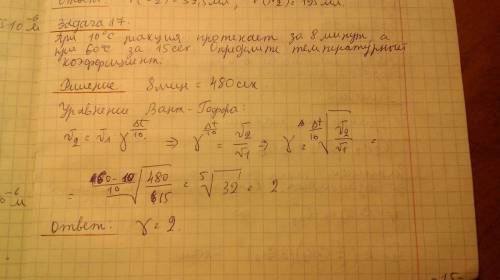 Задача 17.
При 10°С реакция протекает за 8 минут, а
при 60°С за 15 сек Определите температурный
коэффициент.
Решение 8 мин = 480 сек
Уравнение Вант-Гоффа:
v₂ = v₁ γ^(Δt/10) ⇒ γ^(Δt/10) = v₂/v₁ ⇒ γ = ^(Δt/10)√(v₂/v₁) =
= ^((60-10)/10)√(480/15) = ⁵√32 = 2
Ответ. γ = 2.